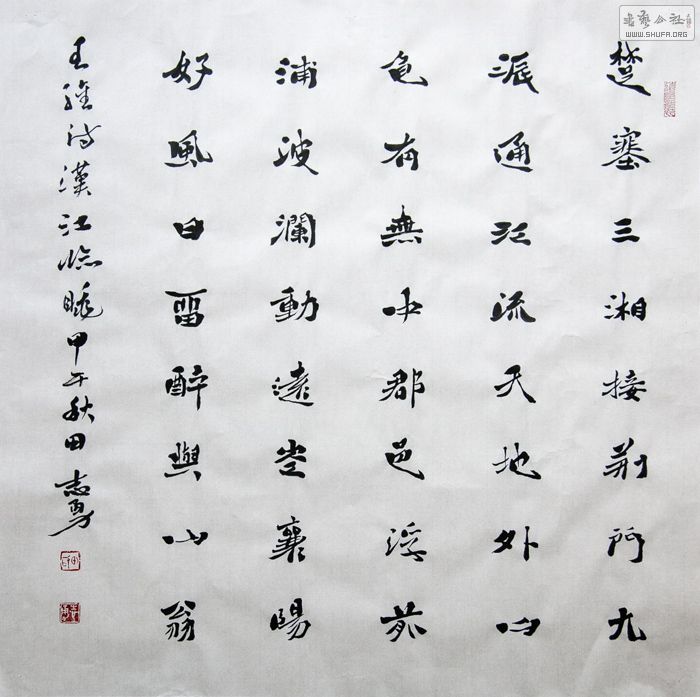 楚塞三湘接荆門九
派通江流天地外山
色有無中郡邑浮前
浦波瀾動遠空襄陽
好風日留醉與山翁
王維詩漢江臨眺甲午秋田志勇
書藝公社
WWW.SHUFA.ORG